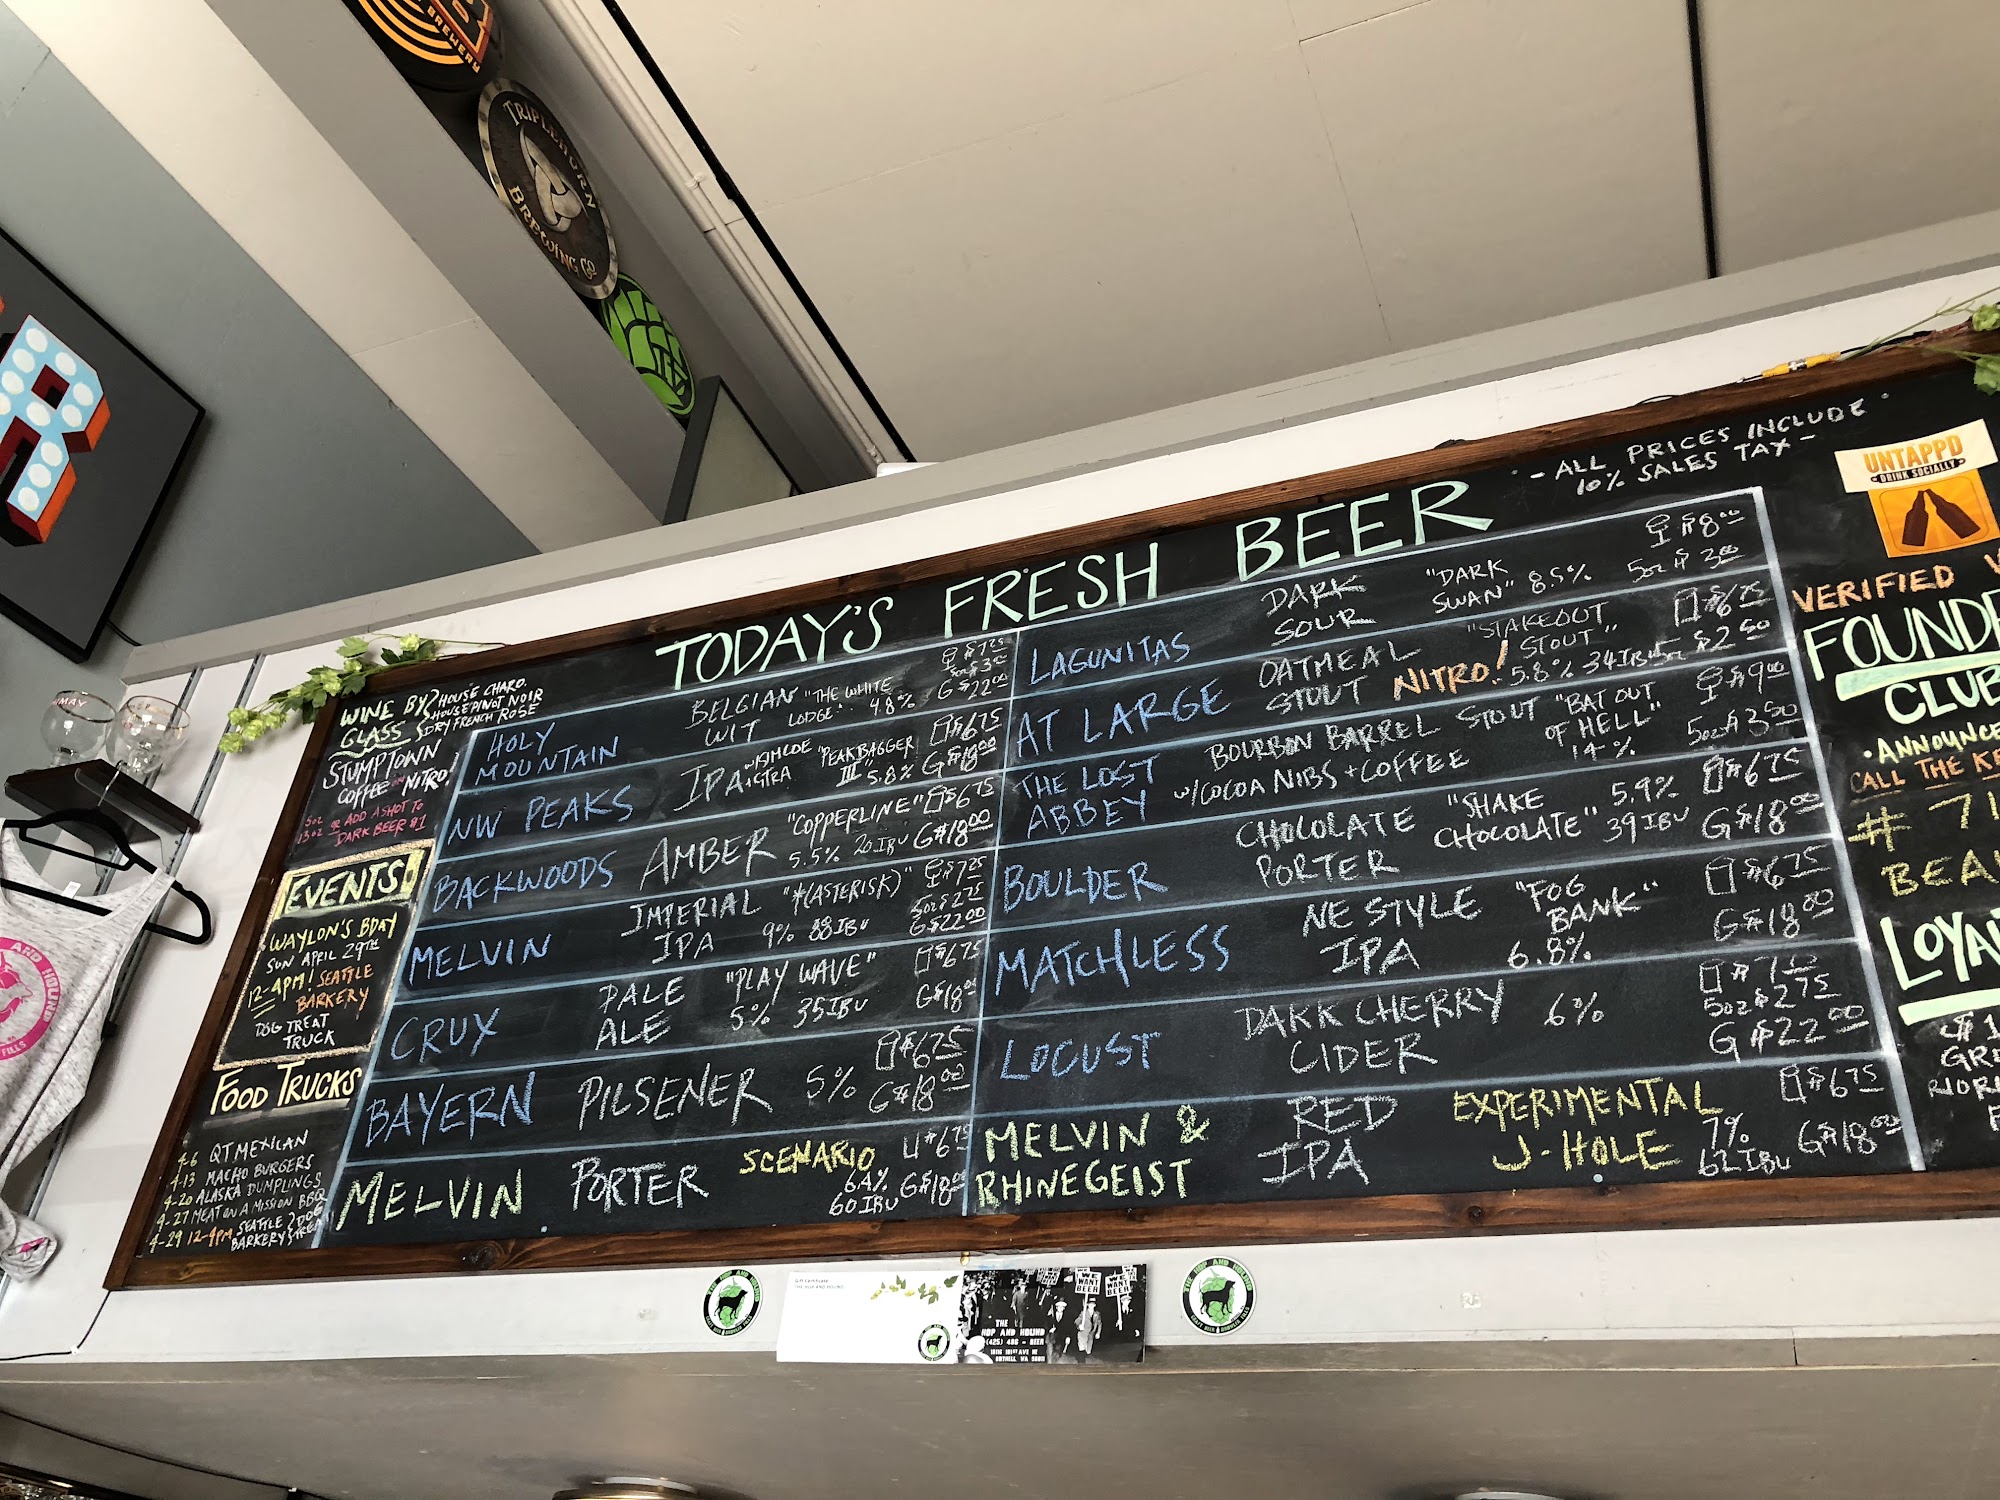 BREWERY
TRIPLEHORN
BREWING CO
R
TODAY'S FRESH BEER
- ALL PRICES INCLUDE
10% SALES TAX -
WINE BY
GLASS
HOUSE CHARD.
HOUSE PINOT NOIR
DRY FRENCH ROSE
STUMPTOWN
COFFEE ON NITRO!
5oz OR ADD A SHOT TO
13oz DARK BEER $1
EVENTS!
WAYLON'S BDAY
SUN APRIL 29TH
12-4PM! SEATTLE
BARKERY
DOG TREAT
TRUCK
FOOD TRUCKS
4-6 QT MEXICAN
4-13 MACHO BURGERS
4-20 ALASKA DUMPLINGS
4-27 MEAT ON A MISSION BBQ
4-29 12-4PM SEATTLE DOG
BARKERY
HOLY
MOUNTAIN
BELGIAN
WIT
"THE WHITE
LODGE" 4.8%
$7.25
5oz $3.00
G $22.00
NW PEAKS
IPA
"PEAKBAGGER
III" 5.8%
$6.75
G $18.00
BACKWOODS
AMBER
"COPPERLINE"
5.5% 20 IBU
$6.75
G $18.00
MELVIN
IMPERIAL
IPA
"*(ASTERISK)"
9% 88 IBU
$7.25
5oz $2.75
G $22.00
CRUX
PALE
ALE
"PLAY WAVE"
5% 35 IBU
$6.75
G $18.00
BAYERN
PILSENER
5%
$6.75
G $18.00
MELVIN
PORTER
SCENARIO
6.4%
60 IBU
$6.75
G $18.00
LAGUNITAS
DARK
SOUR
"DARK
SWAN" 8.5%
$8.00
5oz $3.00
AT LARGE
OATMEAL
STOUT NITRO!
"STAKEOUT
STOUT"
5.8% 34 IBU
$6.75
5oz $2.50
THE LOST
ABBEY
BOURBON BARREL STOUT
W/COCOA NIBS + COFFEE
"BAT OUT
OF HELL"
14%
$9.00
5oz $3.50
BOULDER
CHOCOLATE
PORTER
"SHAKE
CHOCOLATE"
5.9%
39 IBU
$6.75
G $18.00
MATCHLESS
NE STYLE
IPA
"FOG
BANK"
6.8%
$6.75
G $18.00
LOCUST
DARK CHERRY
CIDER
6%
5oz $2.75
G $22.00
MELVIN &
RHINEGEIST
RED
IPA
EXPERIMENTAL
J-HOLE
7%
62 IBU
$6.75
G $18.00
UNTAPPD
• DRINK SOCIALLY •
VERIFIED V
FOUNDE
CLUB
• ANNOUNCE
CALL THE KE
# 71
BEA
LOYA
$1
GR
AND HOUND
FILLS
THE HOP AND HOUND
Gift Certificate
THE HOP AND HOUND
WE
WANT
BEER
WE
WANT
BEER
THE
HOP AND HOUND
(425) 486 - BEER
BOTHELL WA 98011
THE HOP AND HOUND